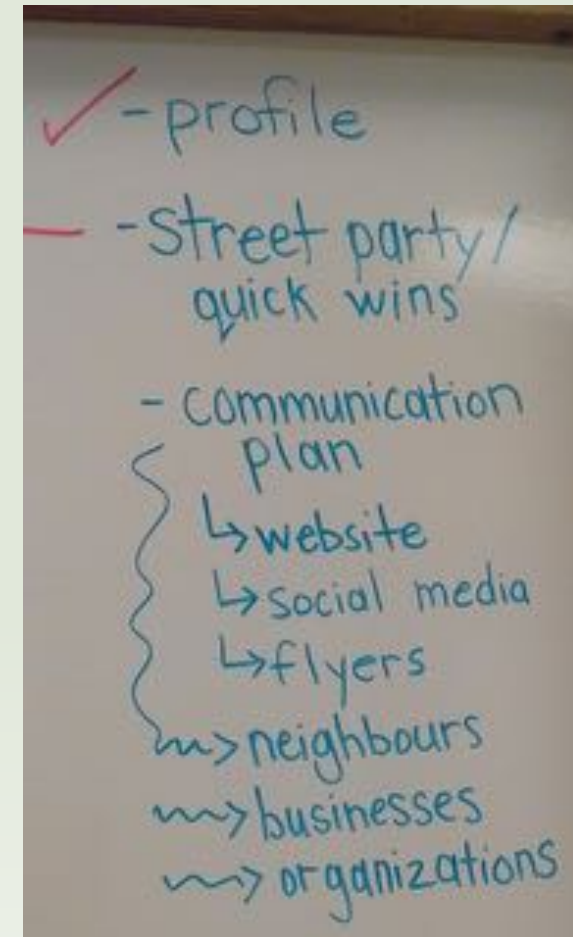 - profile
- Street party/
quick wins
- communication
plan
↳ website
↳ social media
↳ flyers
~> neighbours
~> businesses
~> organizations